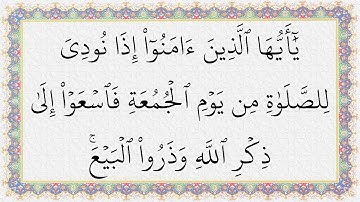 يَٰٓأَيُّهَا ٱلَّذِينَ ءَامَنُوٓا۟ إِذَا نُودِىَ
لِلصَّلَوٰةِ مِن يَوْمِ ٱلْجُمُعَةِ فَٱسْعَوْا۟ إِلَىٰ
ذِكْرِ ٱللَّهِ وَذَرُوا۟ ٱلْبَيْعَ ۚ